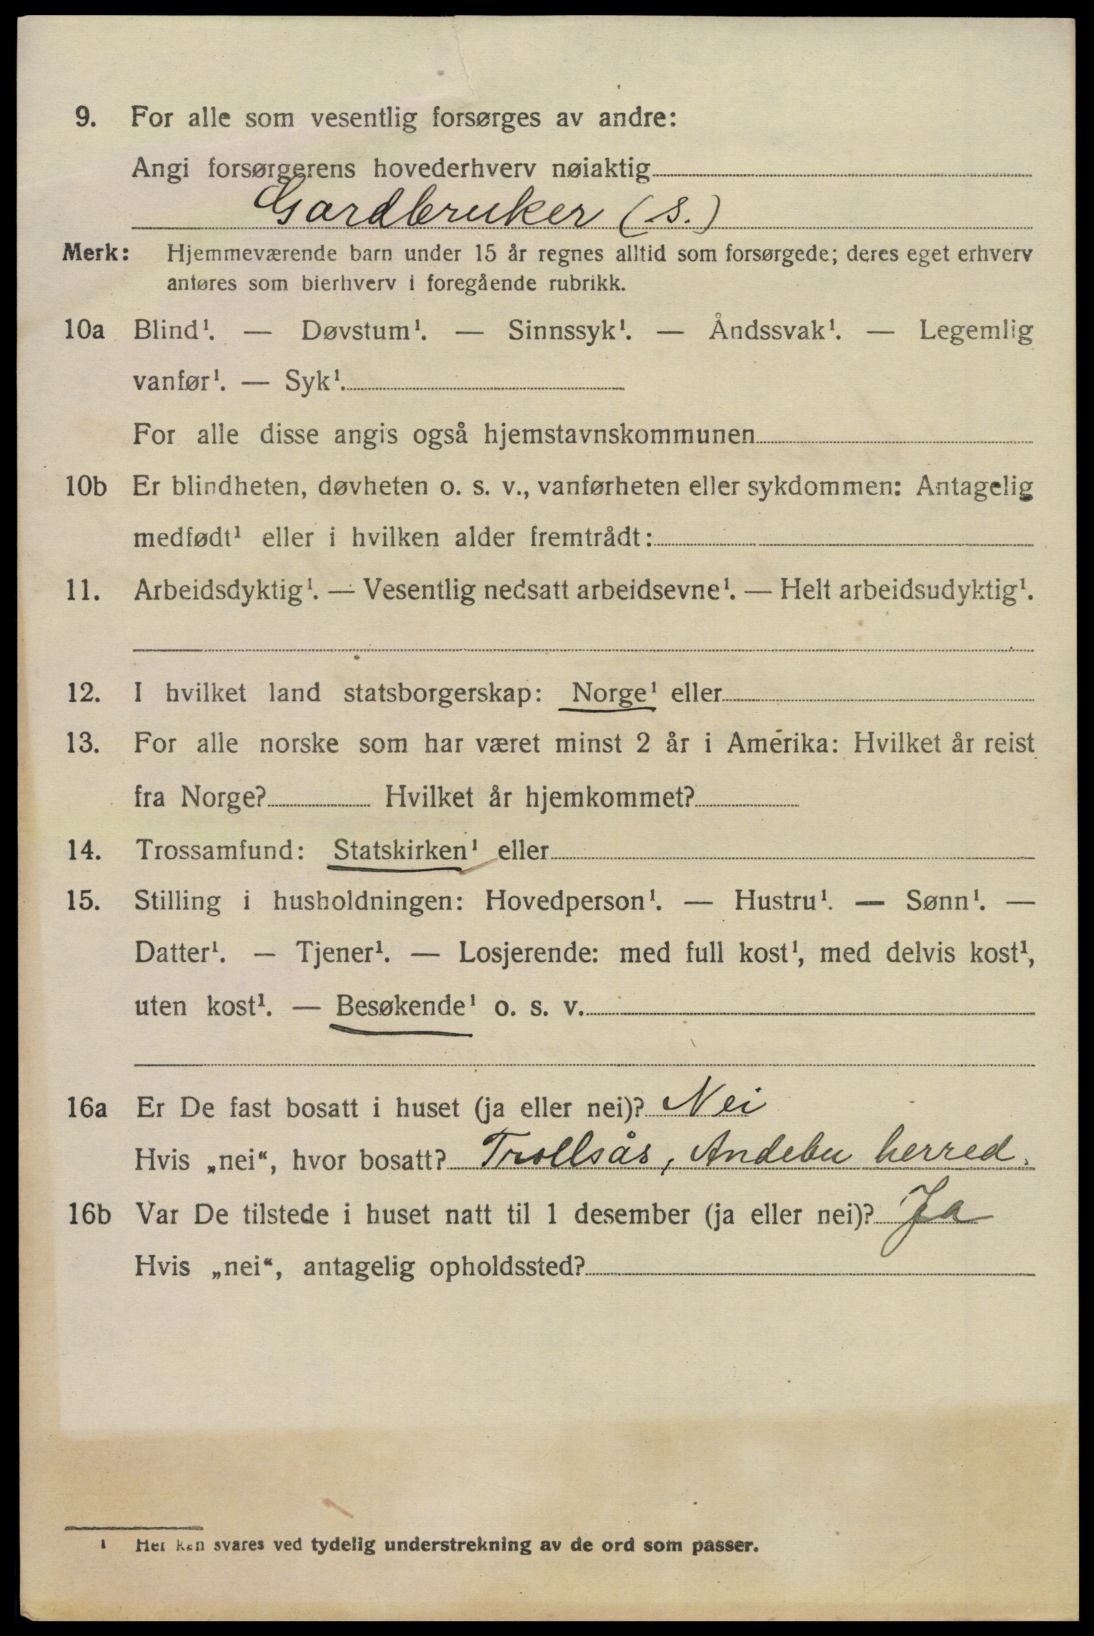 9. For alle som vesentlig forsørges av andre:
Angi forsørgerens hovederhverv nøiaktig
Gardbruker (s.)
Merk: Hjemmeværende barn under 15 år regnes alltid som forsørgede; deres eget erhverv
anføres som bierhverv i foregående rubrikk.
10a Blind¹. — Døvstum¹. — Sinnssyk¹. — Åndssvak¹. — Legemlig
vanfør¹. — Syk¹.
For alle disse angis også hjemstavnskommunen
10b Er blindheten, døvheten o. s. v., vanførheten eller sykdommen: Antagelig
medfødt¹ eller i hvilken alder fremtrådt:
11. Arbeidsdyktig¹. — Vesentlig nedsatt arbeidsevne¹. — Helt arbeidsudyktig¹.
12. I hvilket land statsborgerskap: Norge¹ eller
13. For alle norske som har været minst 2 år i Amerika: Hvilket år reist
fra Norge? Hvilket år hjemkommet?
14. Trossamfund: Statskirken¹ eller
15. Stilling i husholdningen: Hovedperson¹. — Hustru¹. — Sønn¹. —
Datter¹. — Tjener¹. — Losjerende: med full kost¹, med delvis kost¹,
uten kost¹. — Besøkende¹ o. s. v.
16a Er De fast bosatt i huset (ja eller nei)? Nei
Hvis „nei“, hvor bosatt? Trollsås, Andebu herred.
16b Var De tilstede i huset natt til 1 desember (ja eller nei)? Ja
Hvis „nei“, antagelig opholdssted?
¹ Her kan svares ved tydelig understrekning av de ord som passer.